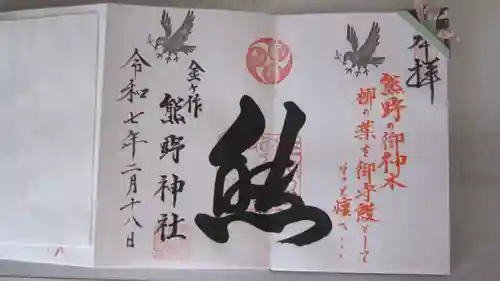 奉拝
熊野の御神木
梛の葉を御守護として
熊
金ヶ作
熊野神社
令和七年二月十八日